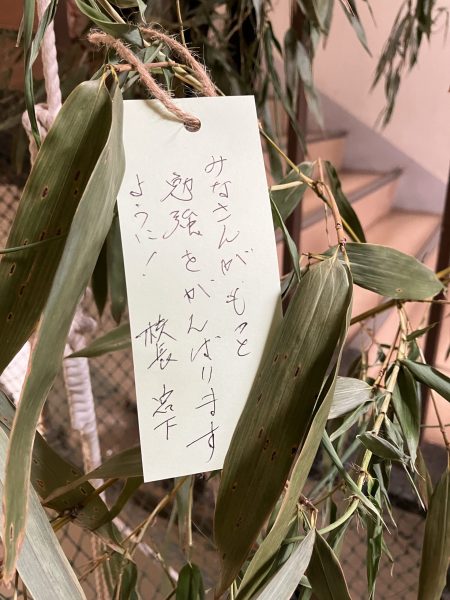 みなさんがもっと
勉強をがんばります
ように!
校長 岩下